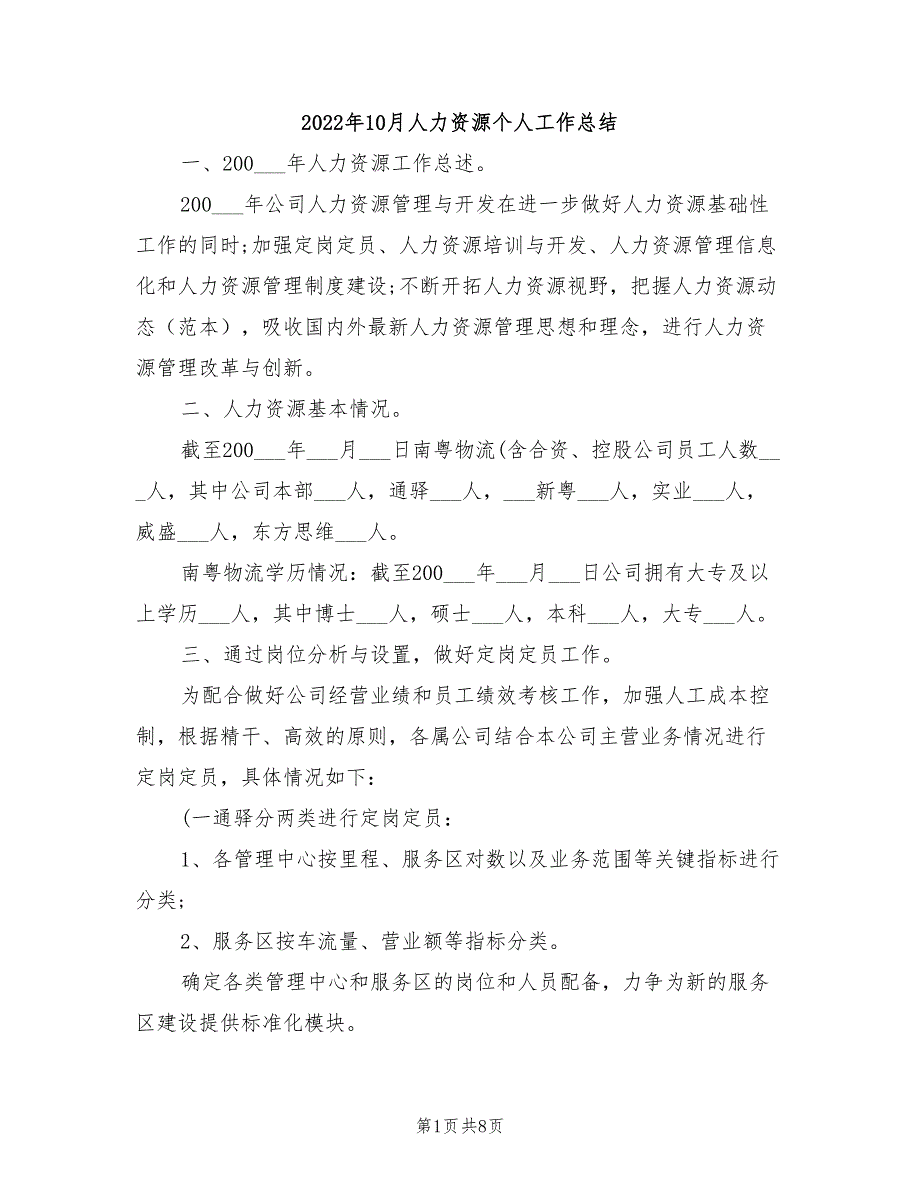 2022年10月人力资源个人工作总结
一、200___年人力资源工作总述。
200___年公司人力资源管理与开发在进一步做好人力资源基础性
工作的同时;加强定岗定员、人力资源培训与开发、人力资源管理信息
化和人力资源管理制度建设;不断开拓人力资源视野，把握人力资源动
态（范本），吸收国内外最新人力资源管理思想和理念，进行人力资
源管理改革与创新。
二、人力资源基本情况。
截至200___年___月___日南粤物流(含合资、控股公司员工人数__
_人，其中公司本部___人，通驿___人，___新粤___人，实业___人，
威盛___人，东方思维___人。
南粤物流学历情况：截至200___年___月___日公司拥有大专及以
上学历___人，其中博士___人，硕士___人，本科___人，大专___人。
三、通过岗位分析与设置，做好定岗定员工作。
为配合做好公司经营业绩和员工绩效考核工作，加强人工成本控
制，根据精干、高效的原则，各属公司结合本公司主营业务情况进行
定岗定员，具体情况如下：
(一通驿分两类进行定岗定员：
1、各管理中心按里程、服务区对数以及业务范围等关键指标进行
分类;
2、服务区按车流量、营业额等指标分类。
确定各类管理中心和服务区的岗位和人员配备，力争为新的服务
区建设提供标准化模块。
第1页 共8页